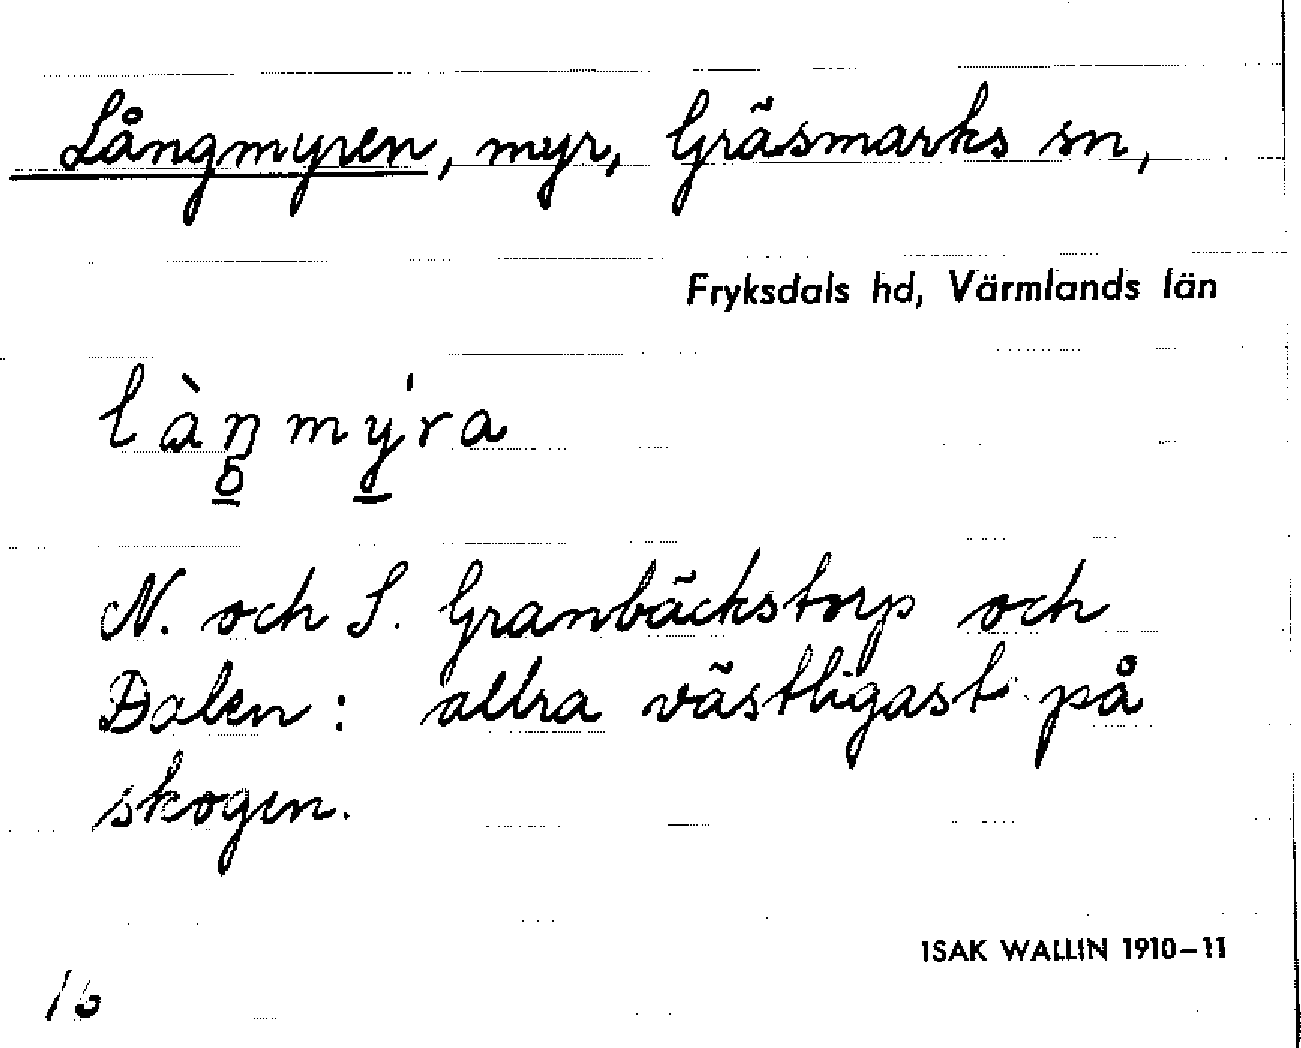 Långmyren, myr, Gräsmarks sn,
Fryksdals hd, Värmlands län
làŋmy̠'ra
N. och S. Granbäckstorp och
Dalen: allra västligast på
skogen.
ISAK WALLIN 1910–11
16